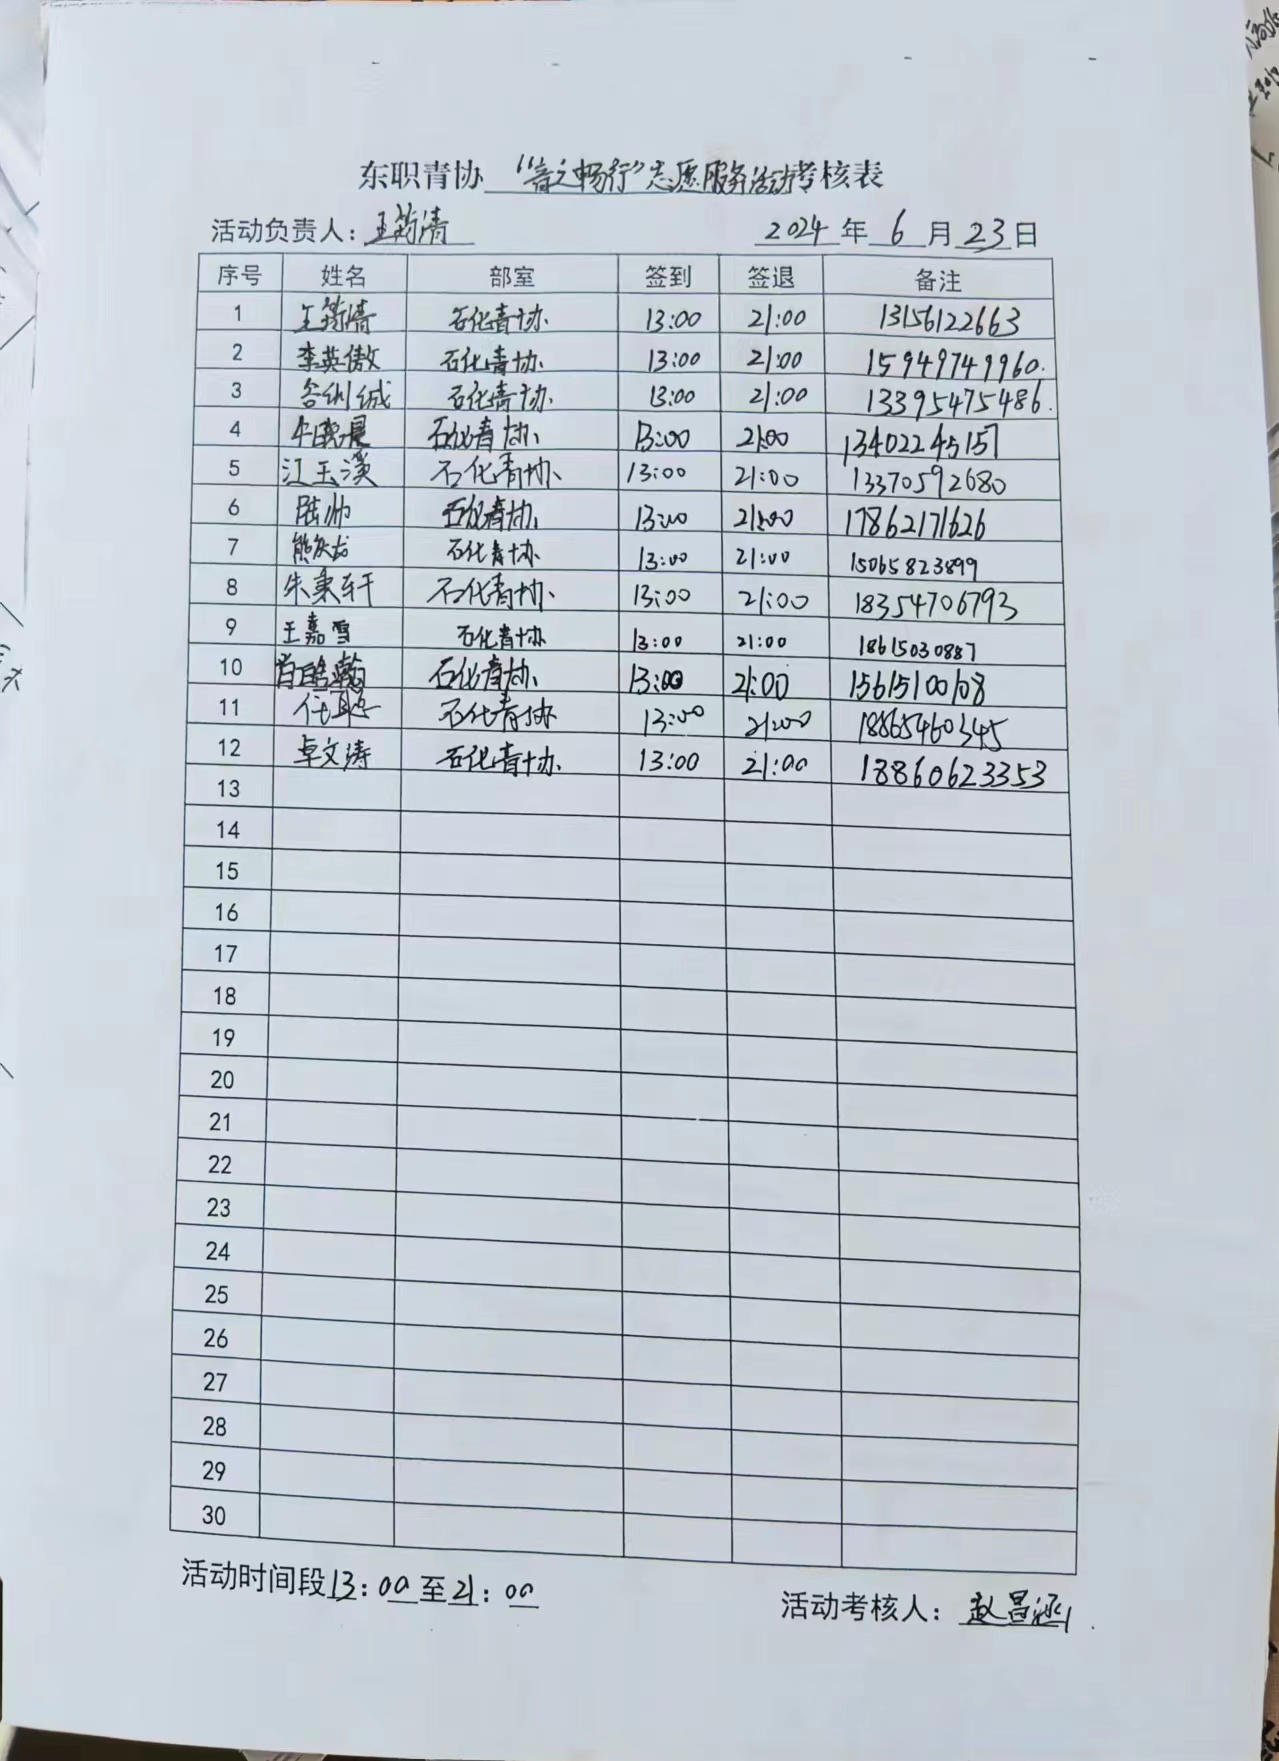 东职青协 “音之畅行”志愿服务活动考核表
活动负责人：王筠清 2024 年 6 月 23 日
序号 姓名 部室 签到 签退 备注
1 王筠清 石化青协 13:00 21:00 13156122663
2 李英傲 石化青协 13:00 21:00 15949749960.
3 石化青协 13:00 21:00 13395475486.
4 牛晓晨 石化青协 13:00 21:00 13402245157
5 江玉溪 石化青协 13:00 21:00 13370592680
6 陆帅 石化青协 13:00 21:00 17862171626
7 石化青协 13:00 21:00 15065823899
8 朱秉轩 石化青协 13:00 21:00 18354706793
9 王嘉雪 石化青协 13:00 21:00 18615030887
10 石化青协 13:00 21:00 15615100108
11 任聪 石化青协 13:00 21:00 18865460345
12 卓文涛 石化青协 13:00 21:00 18860623353
13
14
15
16
17
18
19
20
21
22
23
24
25
26
27
28
29
30
活动时间段13：00至21：00 活动考核人：赵昌涵